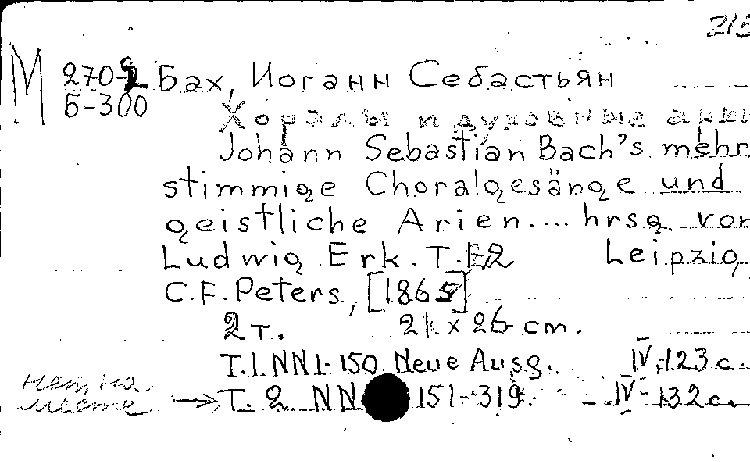 215
М 270-2 Бах, Иоганн Себастьян
Б-300
Хоралы и духовные арии
Johann Sebastian Bach's mehr
stimmige Choralgesänge und
geistliche Arien.... hrsg von
Ludwig Erk. T. 1,2 Leipzig
C.F. Peters, [1865]
2 т. 21 x 26 cm.
T.1. NN1-150 Neue Ausg. IV, 123 c.
нет на
месте → T. 2 NN 151-319. - IV- 132 c.